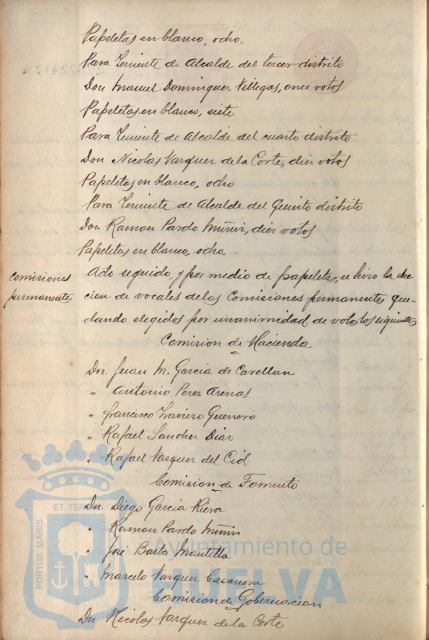 Papeletas en blanco, ocho.
Para Teniente de Alcalde del tercer distrito
Don Manuel Dominguez Villegas, once votos
Papeletas en blanco, siete
Para Teniente de Alcalde del cuarto distrito
Don Nicolas Vazquez de la Corte, diez votos
Papeletas en blanco, ocho
Para Teniente de Alcalde del quinto distrito
Don Ramon Pardo diez votos
Papeletas en blanco, ocho.
comisiones
permanentes
Acto seguido, y por medio de papeletas, se hizo la elec-
cion de vocales de las Comisiones permanentes que-
dando elegidos por unanimidad de votos los siguientes
Comision de Hacienda
Dn. Juan M. Garcia de
" Antonio Perez Arenas
" Francisco Guerrero
" Rafael Sanchez Diaz
" Rafael Vazquez del Cid
Comision de Fomento
Dn Diego Garcia Riera
" Ramon Pardo
" José Barba Mantilla
" Marcelo Vazquez Casanova
Comision de Gobernacion
Dn Nicolas Vazquez de la Corte
PORTUS MARIS ET TERRAE
Ayuntamiento de
HUELVA